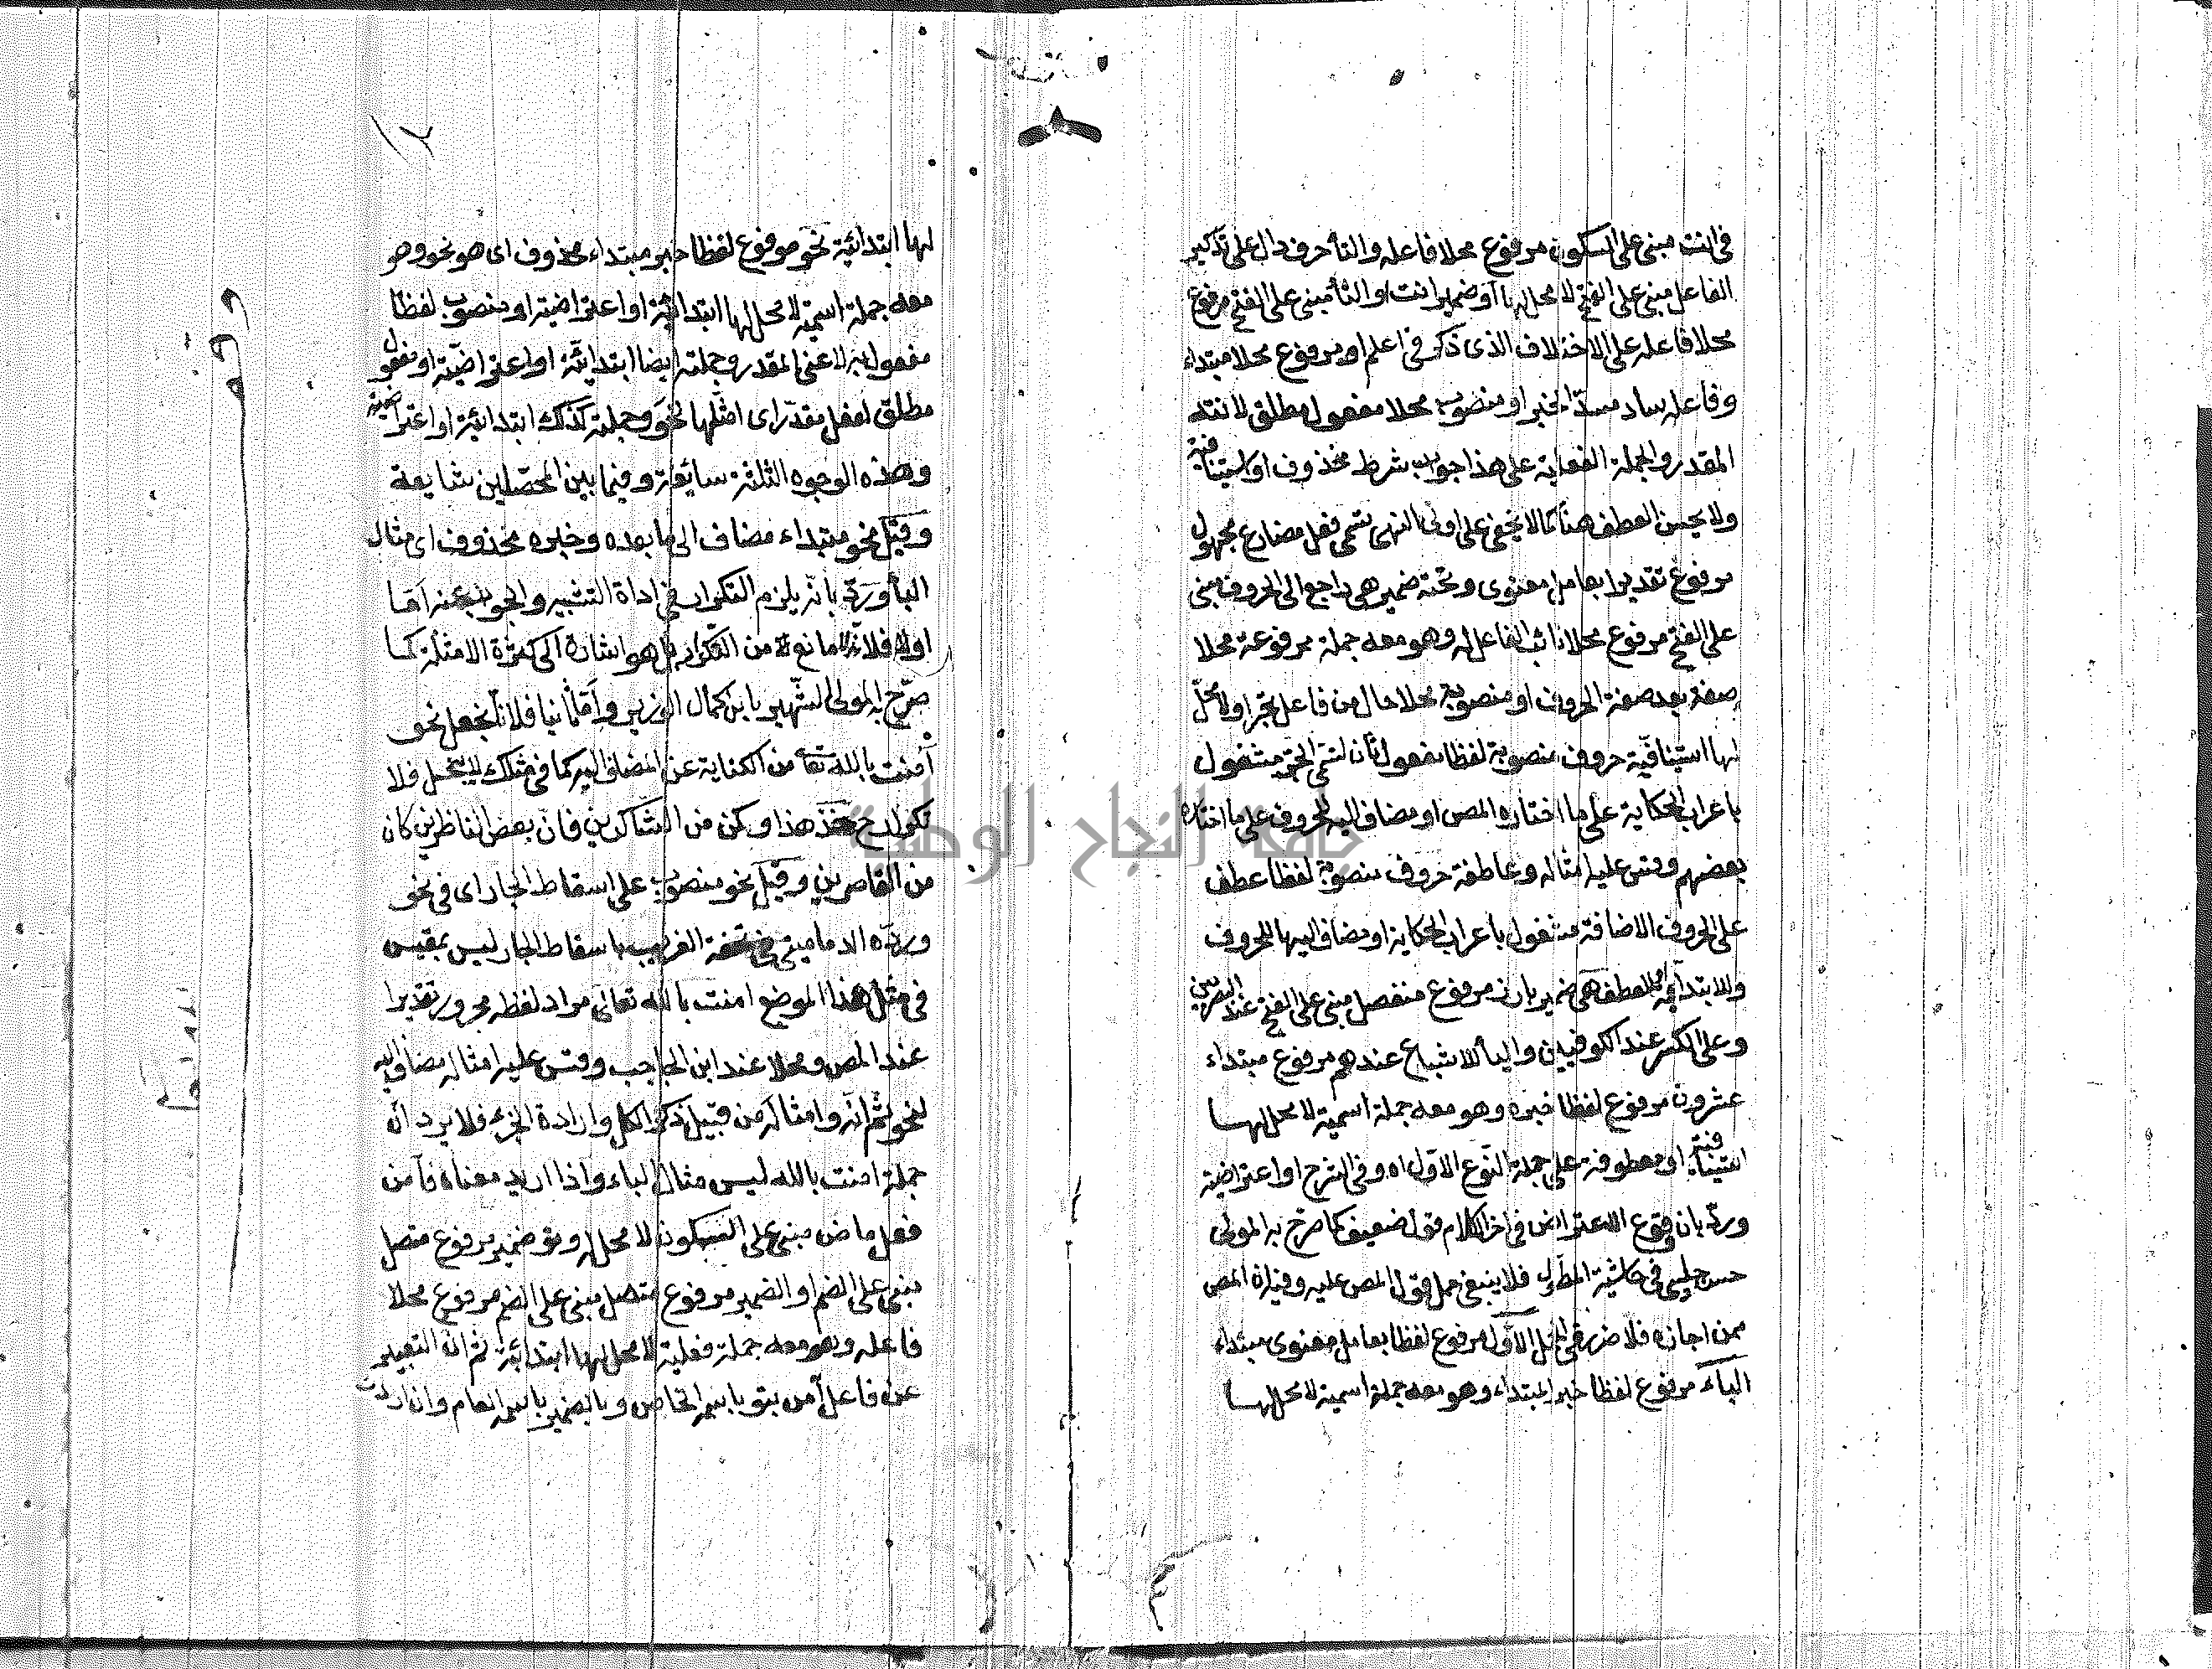 فى انت مبنى على السكون مرفوع محلا فاعله والتأ حرف دال على تذكير
الفاعل مبنى على الفتح لا محل لها او ضمير انت او التأ مبنى على الفتح مرفوع
محلا فاعله على الاختلاف الذى ذكر فى اعلم او مرفوع محلا مبتداء
وفاعله ساد مسدّ الخبر او منصوب محلا مفعول مطلق لانته
المقدر والجملة الفعلية على هذا جواب شرط محذوف او استينافية
ولا يحسن العطف هنا كما لا يخفى على اولى النهى تسمى فعل مضارع مجهول
مرفوع تقديرا بعامل معنوى وتحته ضمير هى راجع الى الحروف مبنى
على الفتح مرفوع محلا نائب الفاعل له وهو معه جملة مرفوعة محلا
صفة بعد صفة الحروف او منصوبة محلا حال من فاعل تجر او لا محلّ
لها استينافيّة حروف منصوبة لفظا مفعول ثان لتسمى الجرّ مشغول
باعراب الحكاية على ما اختاره المص او مضاف اليه للحروف على ما اختاره
بعضهم وقس عليه امثاله وعاطفة حروف منصوبة لفظا عطف
على الحروف الاضافة مشغول باعراب الحكاية او مضاف اليها للحروف
والابتدائية للعطف هى ضمير بارز مرفوع منفصل مبنى على الفتح عند البصريين
وعلى الكسر عند الكوفيين واليأ للاشباع عندهم مرفوع مبتداء
عشرون مرفوع لفظا خبره وهو معه جملة اسمية لا محل لها
استينافية او معطوفة على جملة النّوع الاوّل اه وفى الشرح او اعتراضية
وردّ بان وقوع الاعتراض فى اخر الكلام قول ضعيف كما صرّح به المولى
حسن چلبى فى حاشية المطوّل فلا ينبغى حمل قول المص عليه وفيه ان المص
ممن اجازه فلا ضرر فى الحمل الاوّل مرفوع لفظا بعامل معنوى مبتداء
الباء مرفوع لفظا خبر المبتداء وهو معه جملة اسمية لا محل لها
١٢
لها ابتدائية نحو مرفوع لفظا خبر مبتداء محذوف اى هو نحو وهو
معه جملة اسمية لا محل لها ابتدائية او اعتراضية او منصوب لفظا
مفعول به لاعنى المقدر وجملته ايضا ابتدائية او اعتراضيّة او مفعول
مطلق لفعل مقدّر اى امثّلها نحو وجملته كذلك ابتدائية او اعتراضية
وهذه الوجوه الثلثة سايغة وفيما بين المحصّلين شايعة
وقيل نحو مبتداء مضاف الى ما بعده وخبره محذوف اى مثال
البأ وردّ بانّه يلزم التكرار فى اداة التشبيه والجواب عنه امّا
اولا فلانّه لا مانع من التكرار بل هو اشارة الى كثرة الامثلة كما
صرّح به المولى الشّهير بابن كمال الوزير وامّا ثانيا فلانا نجعل نحو
آمنت بالله تعا من الكناية عن المضاف اليه كما فى مثلك لا يبخل فلا
تكرار ح خذ هذا وكن من الشاكرين فانّ بعض الناظرين كان
من القاصرين وقيل نحو منصوب على اسقاط الجار اى فى نحو
وردّه الدمامينى فى تحفة الغريب باسقاط الجار ليس بمقيس
فى مثل هذا الموضع امنت بالله تعالى مراد لفظه مجرور تقديرا
عند المص ومحلا عند ابن الحاجب وقس عليه امثاله مضاف اليه
لنحو ثم انّه وامثاله من قبيل ذكر الكل وارادة الجزء فلا يرد انّه
جملة امنت بالله ليس مثال الباء واذا اريد معناه فآمن
فعل ماض مبنى على السكون لا محل له وتو ضمير مرفوع متصل
مبنى على الضم او الضمير مرفوع متصل مبنى على الضم مرفوع محلا
فاعله وهو معه جملة فعلية لا محل لها ابتدائية ثم انّ التعبير
عن فاعل آمن بتو باسمه الخاص وبالضمير باسمه العام وان اردت
جامعة النجاح الوطنية